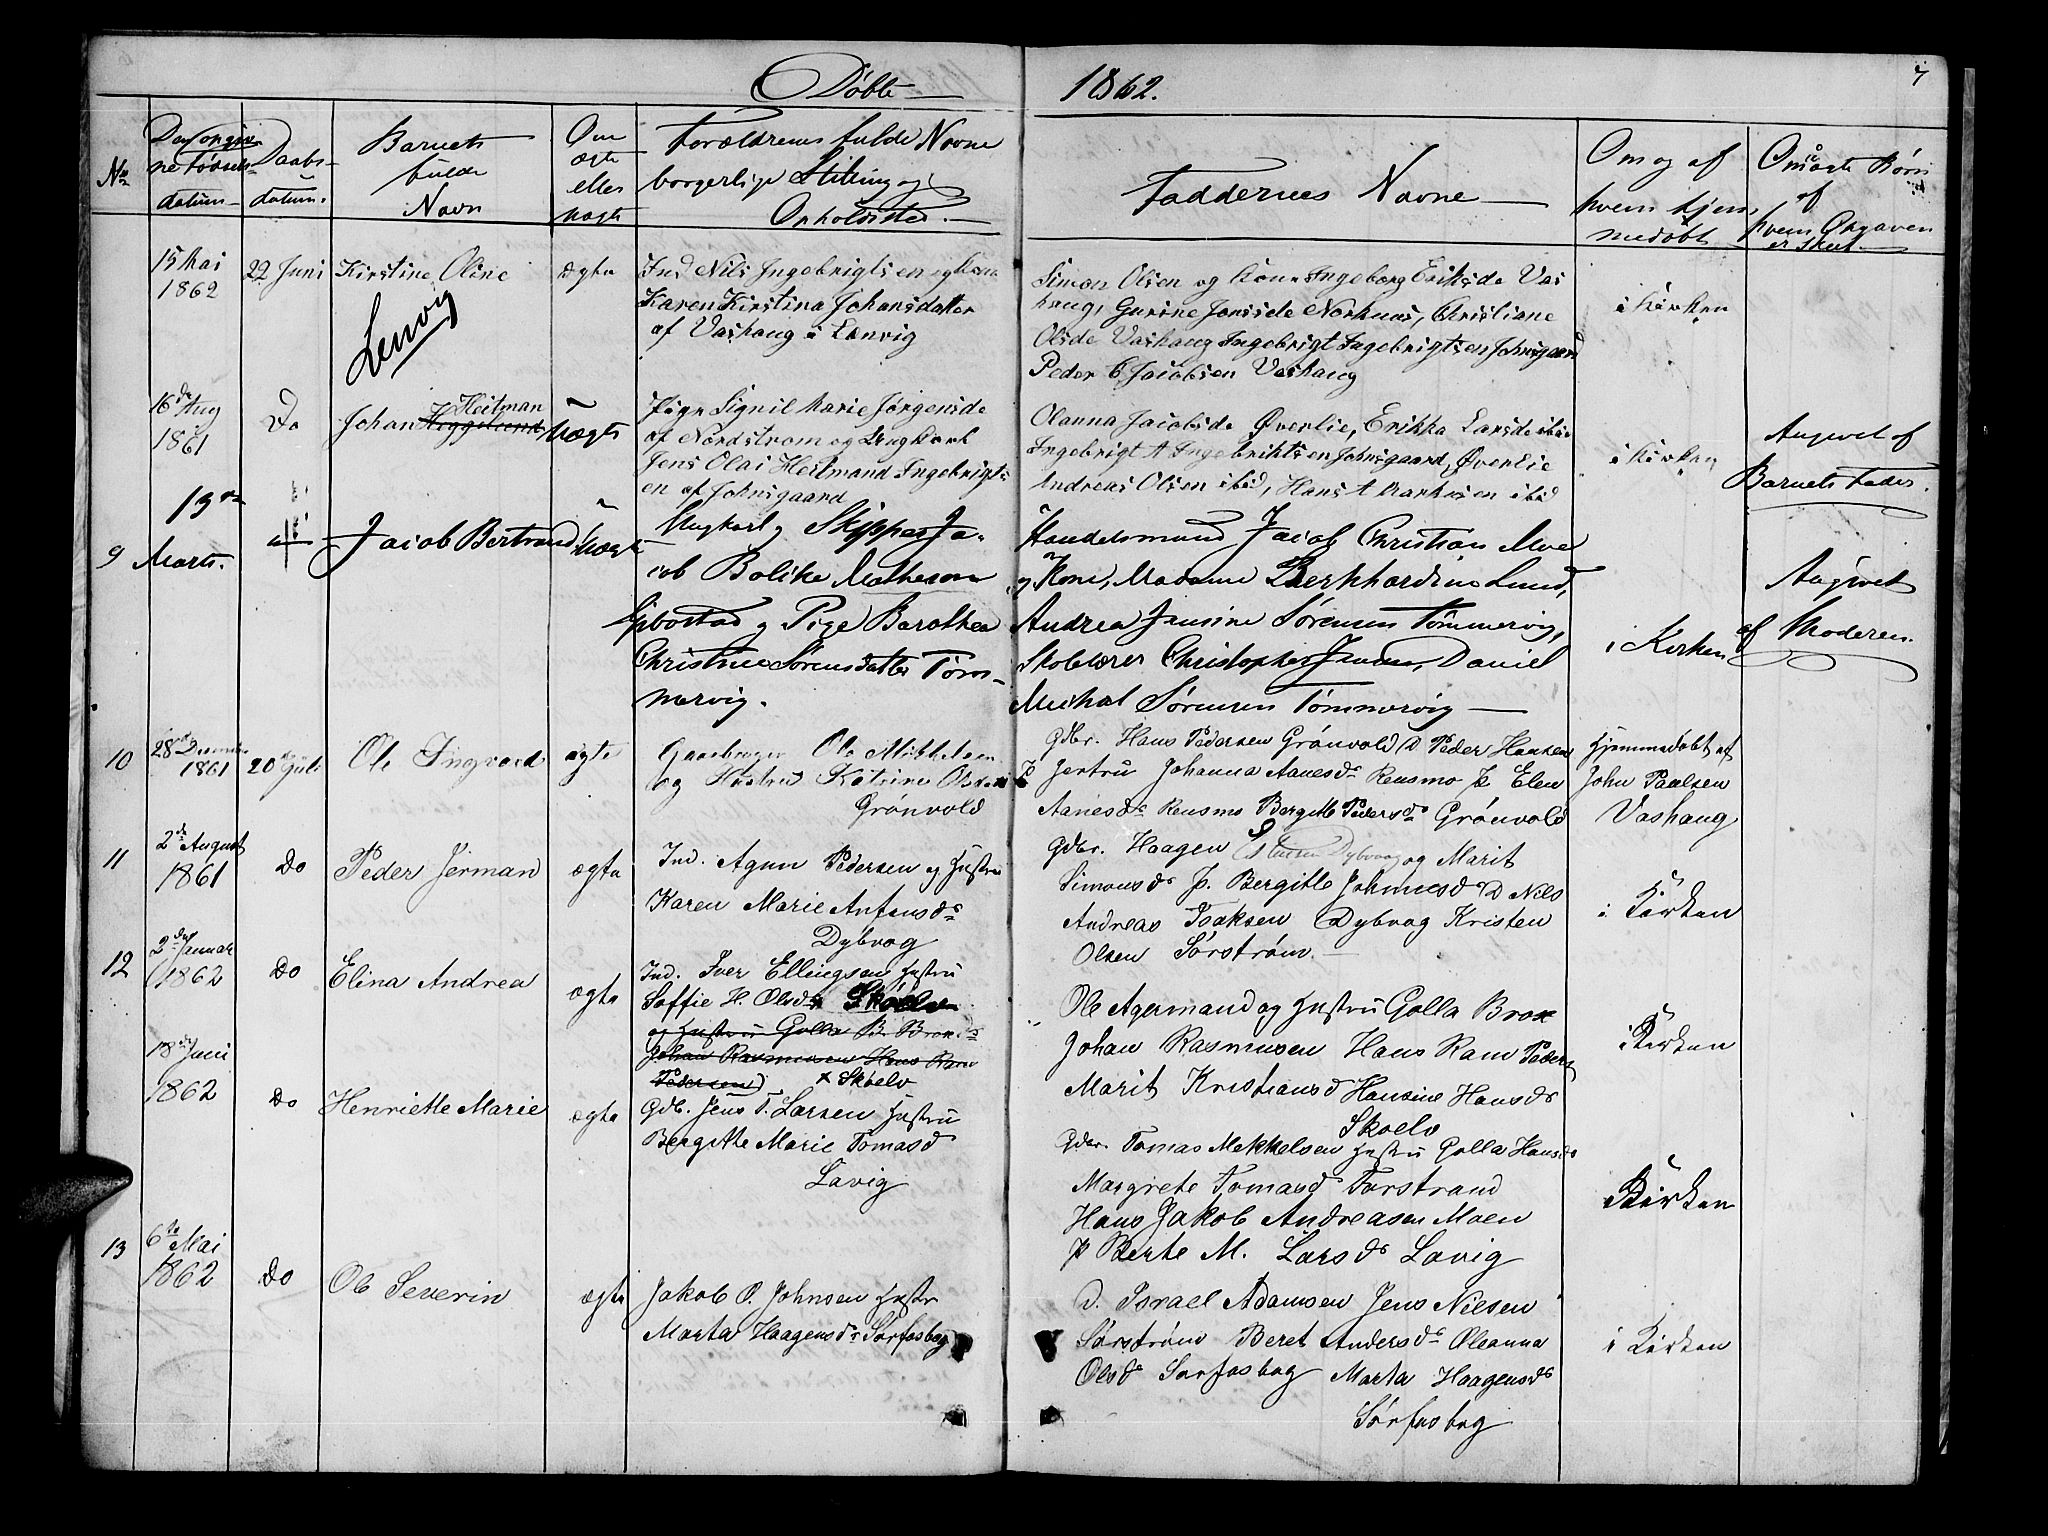 Døbte
1862.
7
No
Den ongiv-
ne Fødsels-
datum
Daabs-
datum.
Barnets
fulde
Navn
Om
ægte
eller
uægte
Forældrenes fulde Navne
borgerlige Stilling og
Opholdsted.
Faddernes Navne
Om og af
hvem hjem-
medøbt
Om uægte Børn
af
hvem Opgaven
er skeet
15 Mai
1862
22 Juni
Kirstine Oline
Lenvig
ægte
Ind Nils Ingebrigtsen og Kone
Karen Kirstina Johansdatter
af Vashaug i Lenvig
Simon Olsen og Kone Ingeborg Eriksde Vas
haug, Gurine Jonsde Norknes, Christiane
Olsde Vashaug Ingebrigt Ingebrigtsen Johnsgaard
Peder C Jacobsen Vashaug
i Kirken
16de Aug
1861
Do
Johan Heggelund Heitman
Uægte
Pige Signil Marie Jørgensde
af Nordstrøm og Ungkarl
Jens Olai Heitmand Ingebrigts
en af Johnsgaard
Olanna Jacobsde Øverlie, Erikka Larsde ibid
Ingebrigt A Ingebriktsen Johnsgaard, Øverlie
Andreas Olsen ibid, Hans A Markusen ibid
i Kirken
Angivet af
Barnets Fader.
9
13de
Marts.
Jacob Bertrand
Uægte
Ungkarl og Skipper Ja-
cob Bolike Matheson
Gibostad og Pige Barothea
Christine Sørensdatter Tøm-
mervig.
Handelsmand Jacob Christian Moe
og Kone, Madame Berhhardine Lund,
Andrea Jensine Sørensen Tømmervig,
Skolelærer Christopher Jensen, Daniel
Michal Sørensen Tømmervig
i Kirken
Angivet
af Moderen.
10
28de December
1861
20de Juli
Ole Ingvard
ægte
Gaardbruger Ole Mikkelsen
og Hustru Katrine Olsd
Grønvold
Gdbr. Hans Pedersen Grønvold D Peder Hansen
Jertru Johanna Aanesd Rensmo P. Elen
Aanesd Rensmo Bergitte Pedersd Grønvold
Hjemmedøbt af
John Paulsen
Vashaug
11
2de August
1861
do
Peder Jerman
ægte
Ind. Agun Pedersen og Hustru
Karen Marie Anfensd
Dybvag
Gdbr. Haagen Dybvaag og Marit
Simonsd P. Bergitte Johnnesd D Nils
Andreas Isaksen Dybvag Kristen
Olsen Sørstrøm.
i Kirken
12
2de Januar
1862
do
Elina Andrea
ægte
Ind. Iver Ellingsen, Hustru
Soffie H. Olsd Skoelv
og Hustru Golla B. Brox
Johan Rasmusen Hans Ram
Pedersen) x Skoelv
Ole Agermand og Hustru Golla Brox
Johan Rasmusen Hans Ram Peders
Marit Kristiansd Hansine Hansd
Skoelv
i Kirken
18de Juni
1862
do
Henriette Marie
ægte
Gdb. Jens T. Larsen Hustru
Bergitte Marie Tomasd
Lavig
Gdbr Tomas Mekkelsen Hustru Golla Hansd
Margrete Tomasd Forstrand
Hans Jakob Andreasen Moen
P Berte M. Larsd Lavig
i Kirken
13
6te Mai
1862
do
Ole Severin
ægte
Jakob O. Johnsen Hustr
Marta Haagensd Sørfasbog
D. Israel Adamsen Jens Nilsen
Sørstrøm Beret Andersd Oleanna
Olsd Sørfasbog Marta Haagensd
Sørfasbog
i Kirken